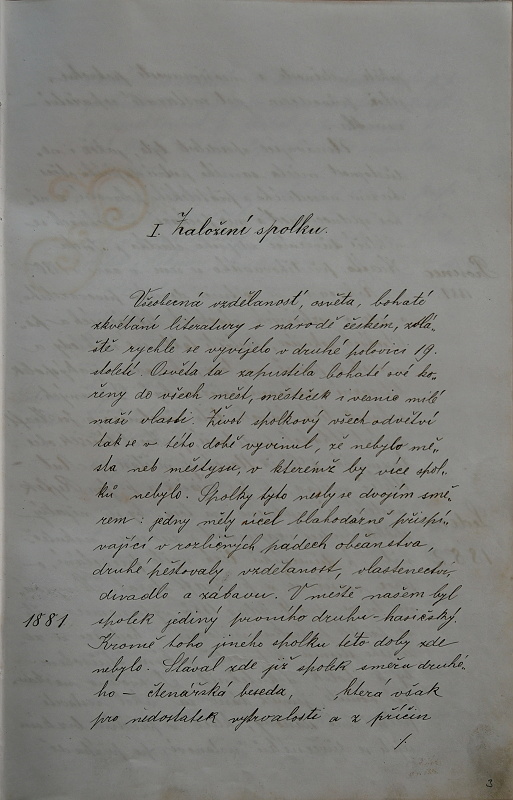 I. Založení spolku.
Všeobecná vzdělanosť, osvěta, bohaté
zkvétání literatury o národě českém, zvlá-
ště rychle se vyvíjelo v druhé polovici 19.
století. Osvěta ta zapustila bohaté své ko-
řeny do všech měst, městeček i vesnic milé
naší vlasti. Život spolkový všech odvětví
tak se v této době vyvinul, že nebylo mě-
sta neb městysu, v kterémž by více spol-
ků nebylo. Spolky tyto nesly se dvojím smě-
rem: jedny měly účel blahodárně přispí-
vající v rozličných pádech občanstva,
druhé pěstovaly vzdělanost, vlastenectví,
divadlo a zábavu. V městě našem byl
1881 spolek jediný prvního druhu - hasičský.
Kromě toho jiného spolku této doby zde
nebylo. Stával zde již spolek směru druhé-
ho - čtenářská beseda, která však
pro nedostatek vytrvalosti a z příčin
./.
3